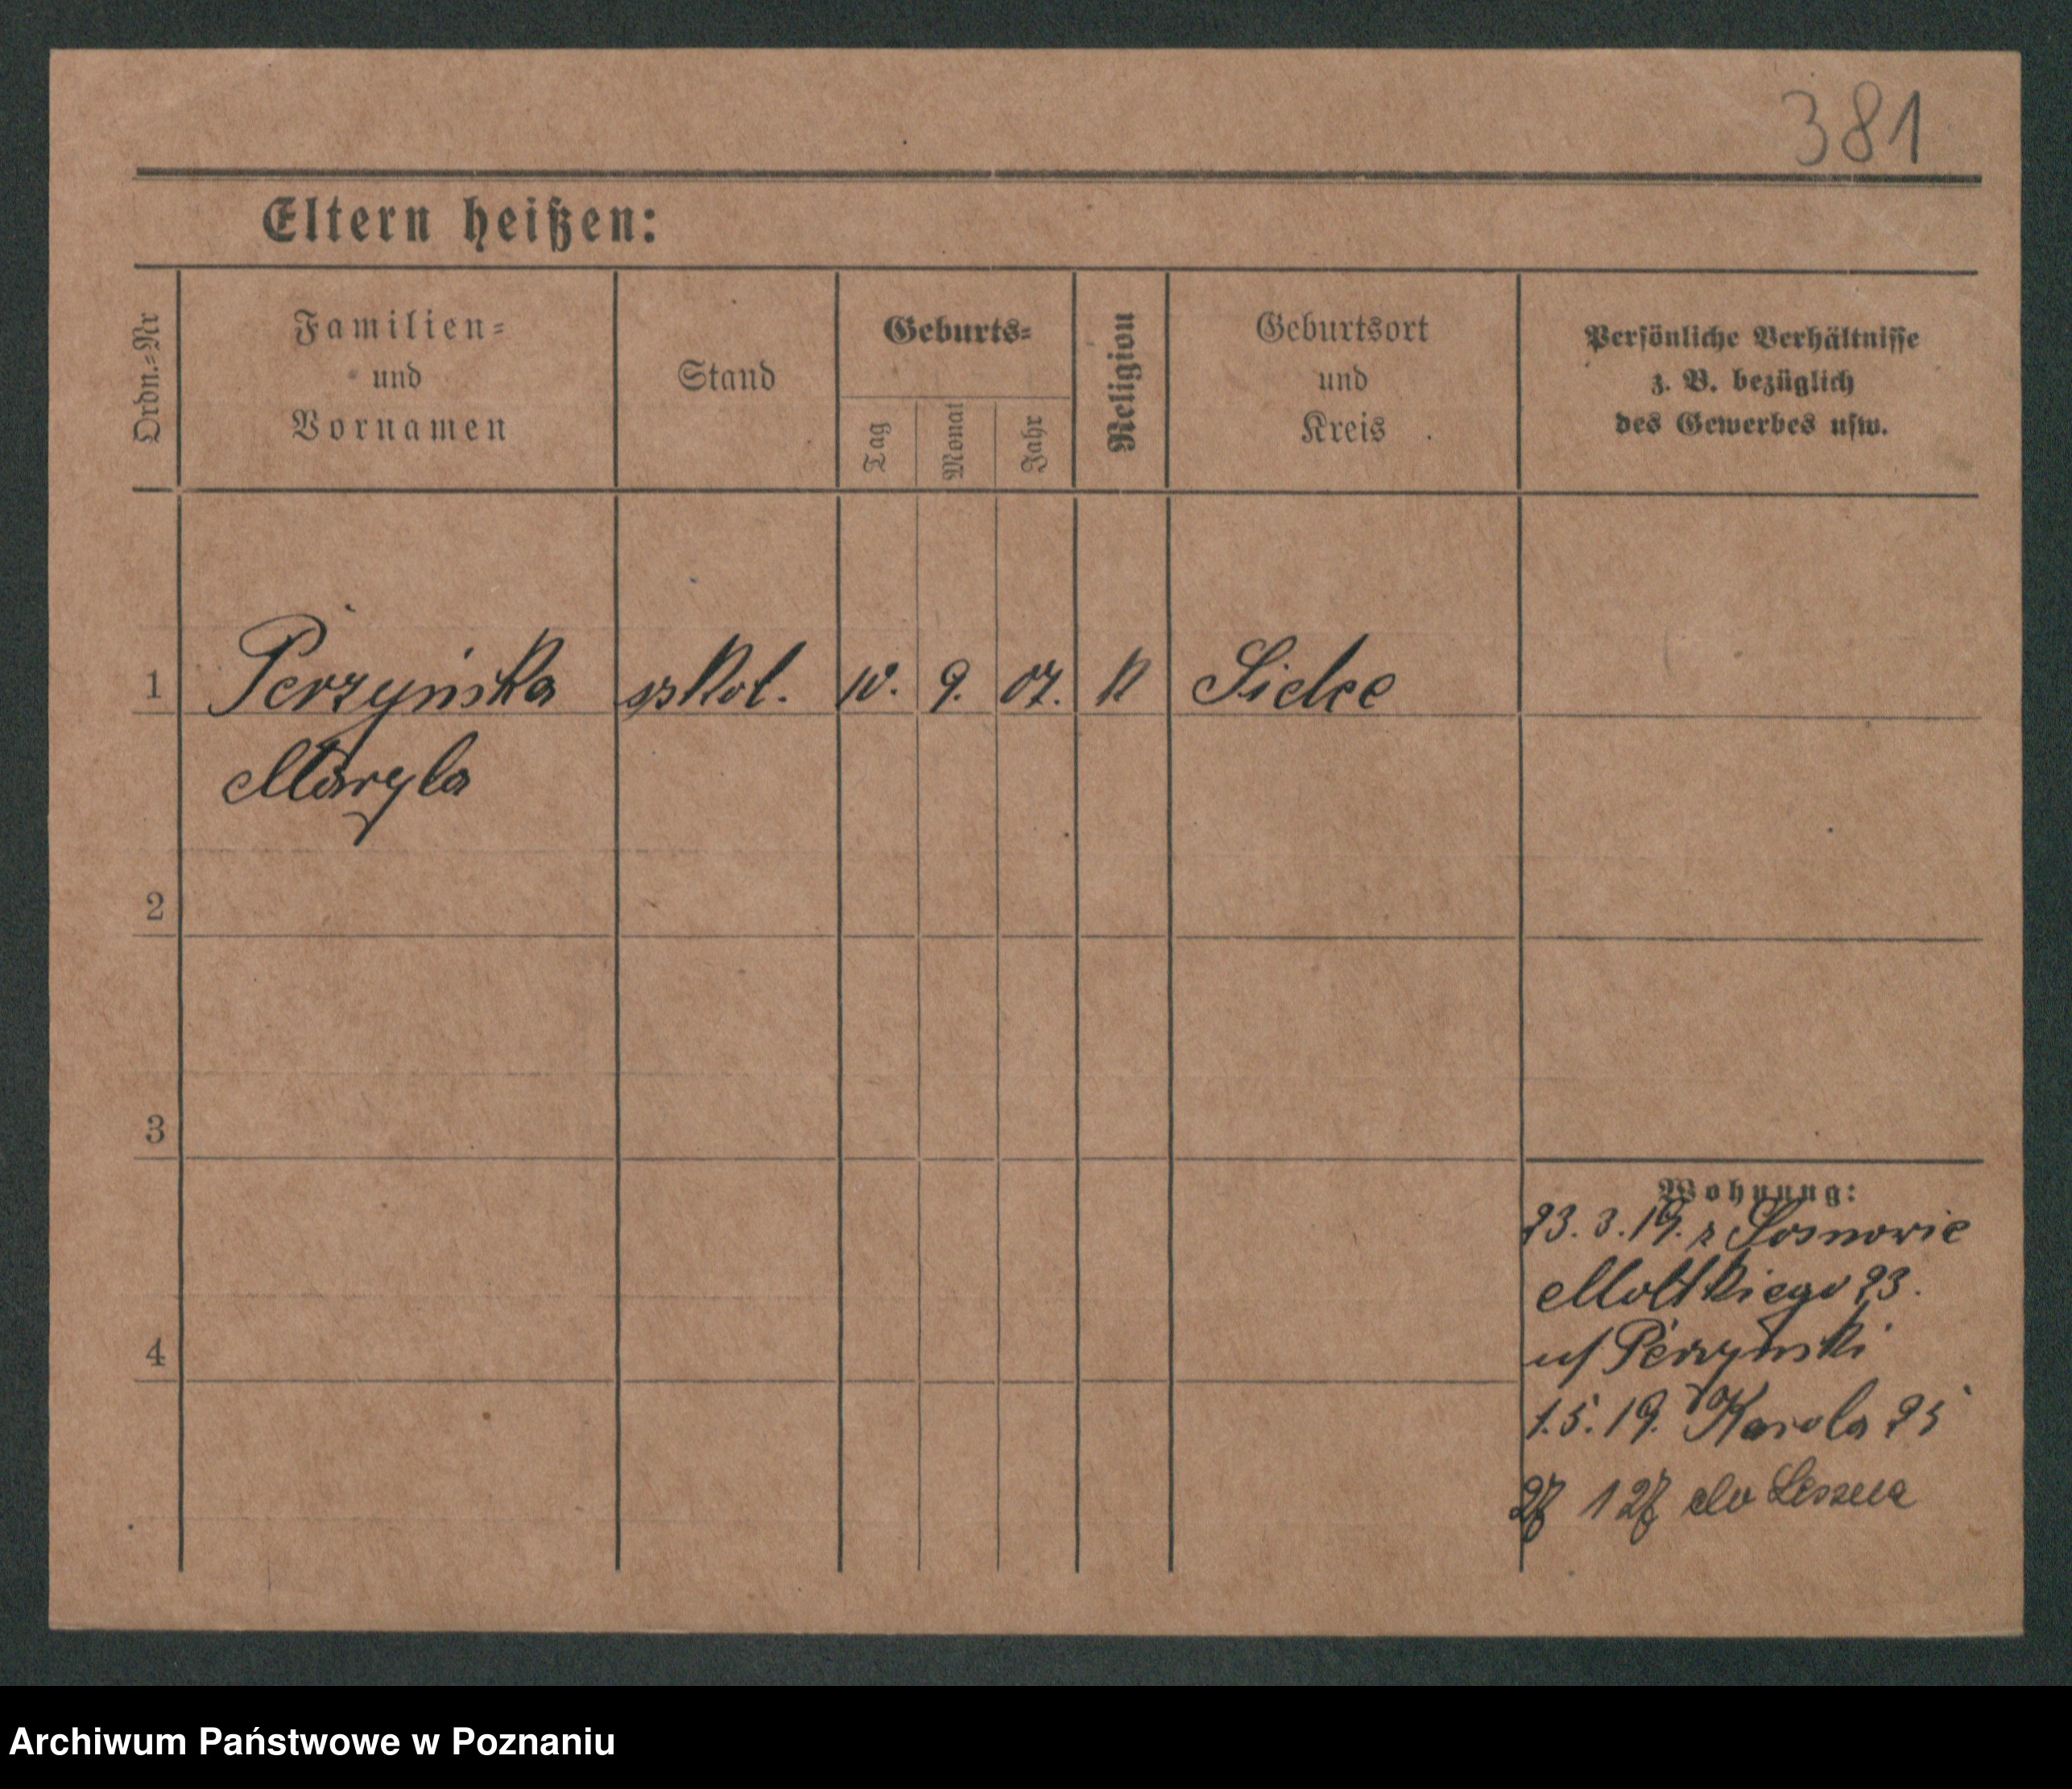 381
Eltern heißen:
Ordn.-Nr
Familien-
und
Vornamen
Stand
Geburts-
Tag
Monat
Jahr
Religion
Geburtsort
und
Kreis
Persönliche Verhältnisse
z. B. bezüglich
des Gewerbes usw.
1
Perzyńska
10. 9. 07. K
Sielce
Maryla
2
3
4
Wohnung:
23. 3. 19. z Sosnowic
Moltkiego 23.
u/ Perzyński
1.5.19. Karola 25
27 1 27 do Leszna
Archiwum Państwowe w Poznaniu